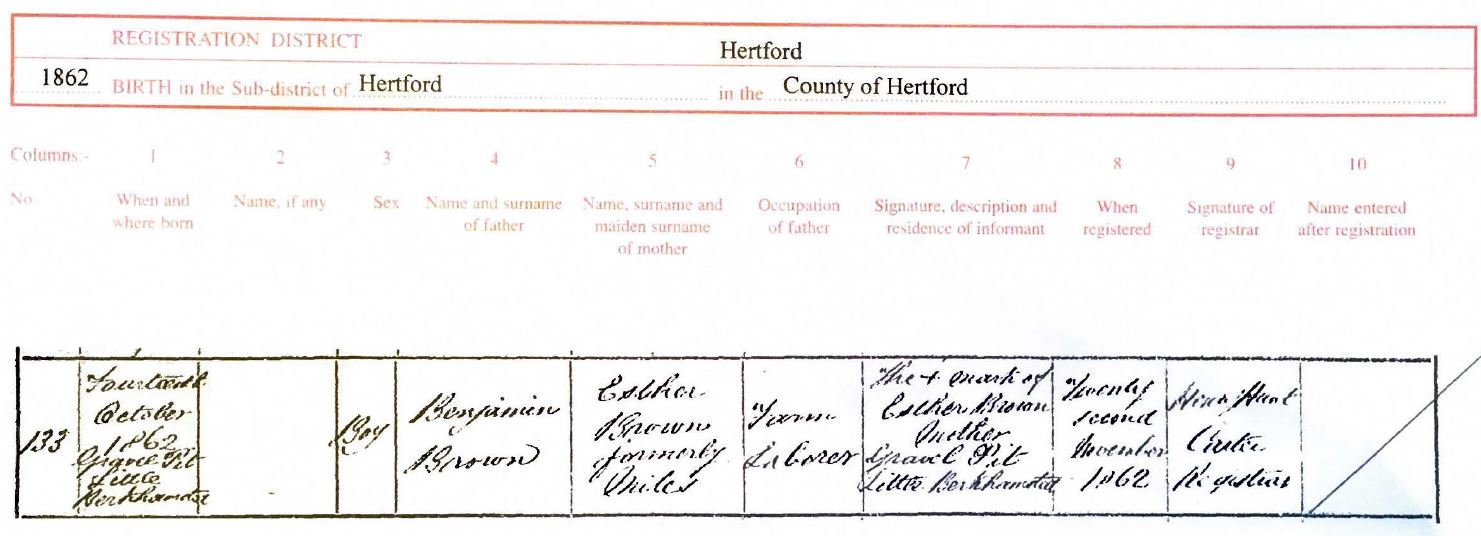 REGISTRATION DISTRICT Hertford
1862 BIRTH in the Sub-district of Hertford in the County of Hertford
Columns:- 1 2 3 4 5 6 7 8 9 10
No When and where born
Name, if any
Sex
Name and surname of father
Name, surname and maiden surname of mother
Occupation of father
Signature, description and residence of informant
When registered
Signature of registrar
Name entered after registration
133
Fourteenth
October
1862
Gravel Pit
Little
Berkhamsted
Boy
Benjamin
Brown
Esther
Brown
formerly
Miles
Farm
Laborer
The + mark of
Esther Brown
Mother
Gravel Pit
Little Berkhamsted
Twenty
second
November
1862
Hunt
Registrar